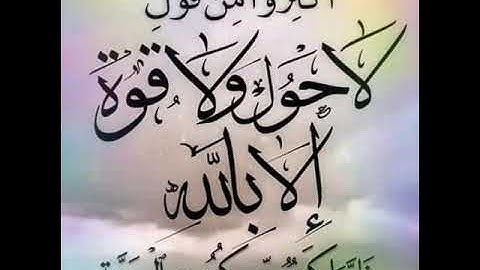 أكثِرُوا مِن قَولِ
لَا حَوْلَ وَلَا قُوَّةَ
إِلَّا بِاللَّهِ